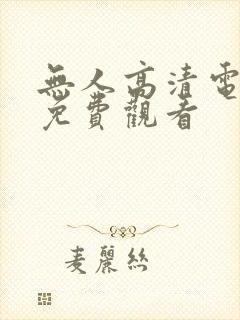 無人高清電
免費觀看
麦麗絲